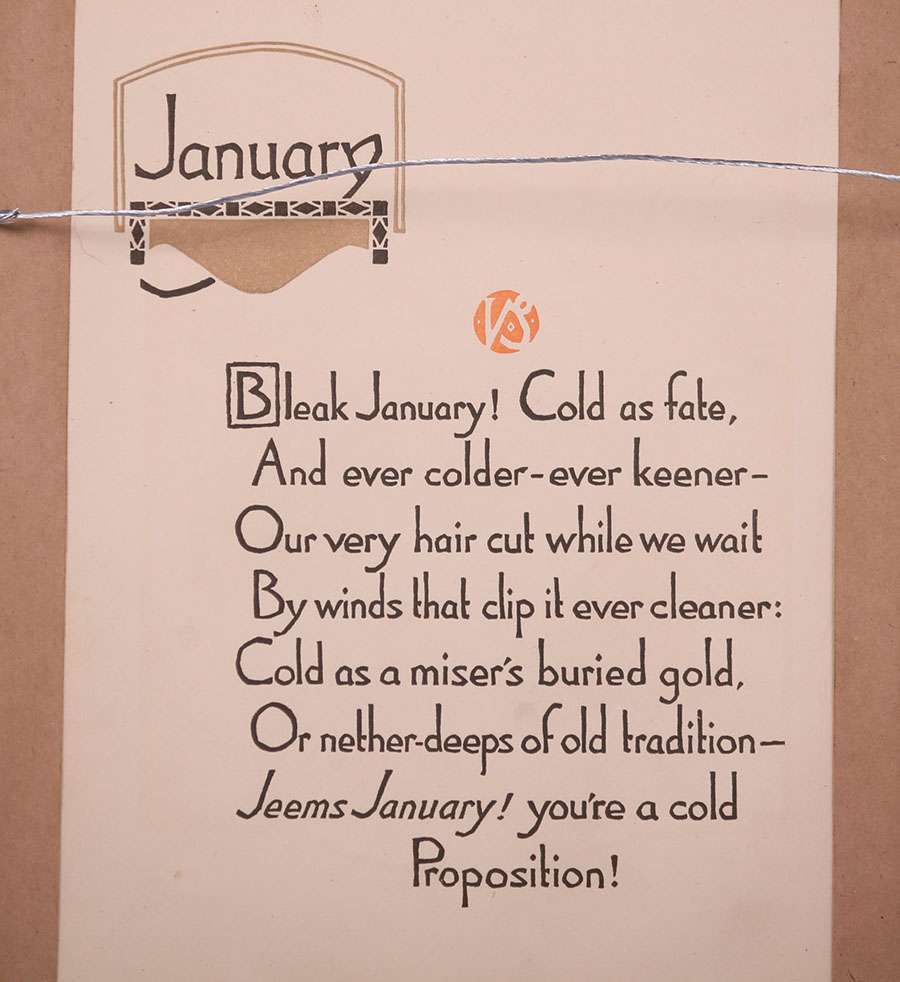 January
VS
Bleak January! Cold as fate,
And ever colder-ever keener-
Our very hair cut while we wait
By winds that clip it ever cleaner:
Cold as a miser's buried gold,
Or nether-deeps of old tradition—
Jeems January! you're a cold
Proposition!